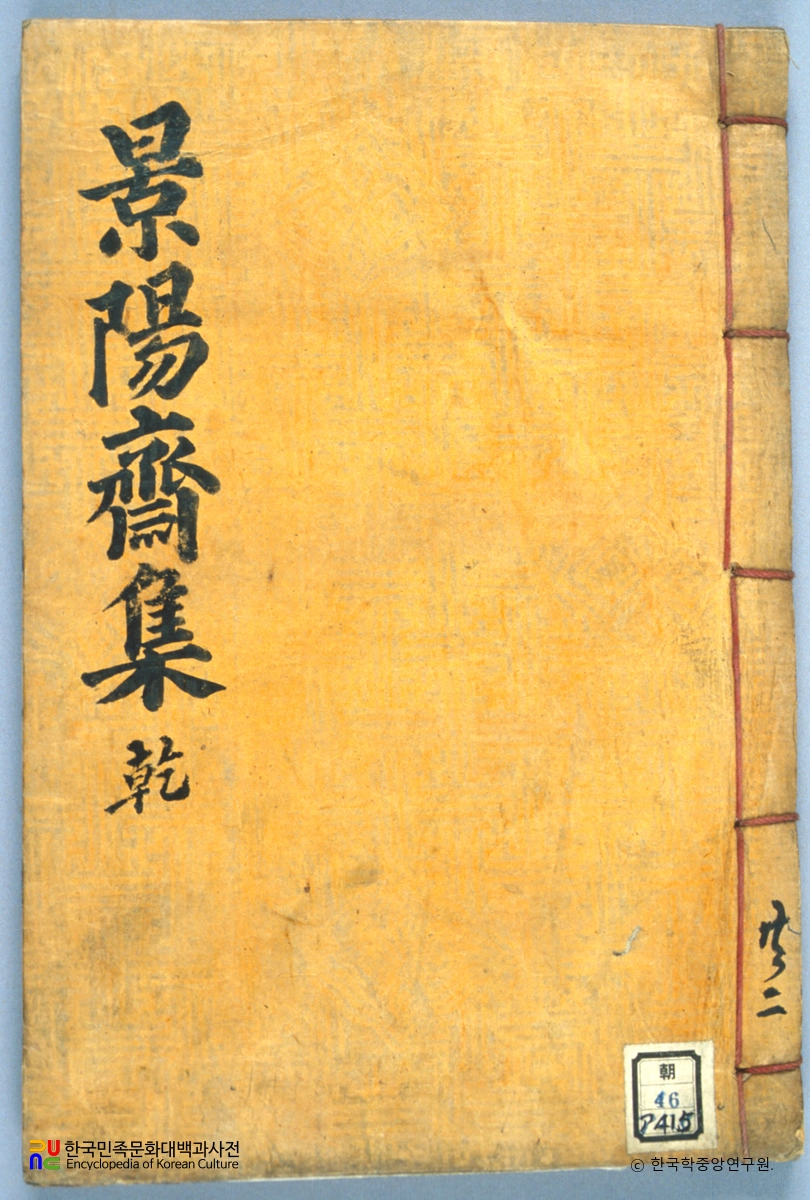 景陽齋集 乾
共二
朝
46
P415
한국민족문화대백과사전
Encyclopedia of Korean Culture
© 한국학중앙연구원.